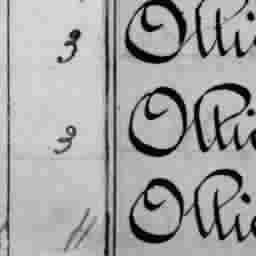 3 Ollie
3 Ollie
11 Ollie